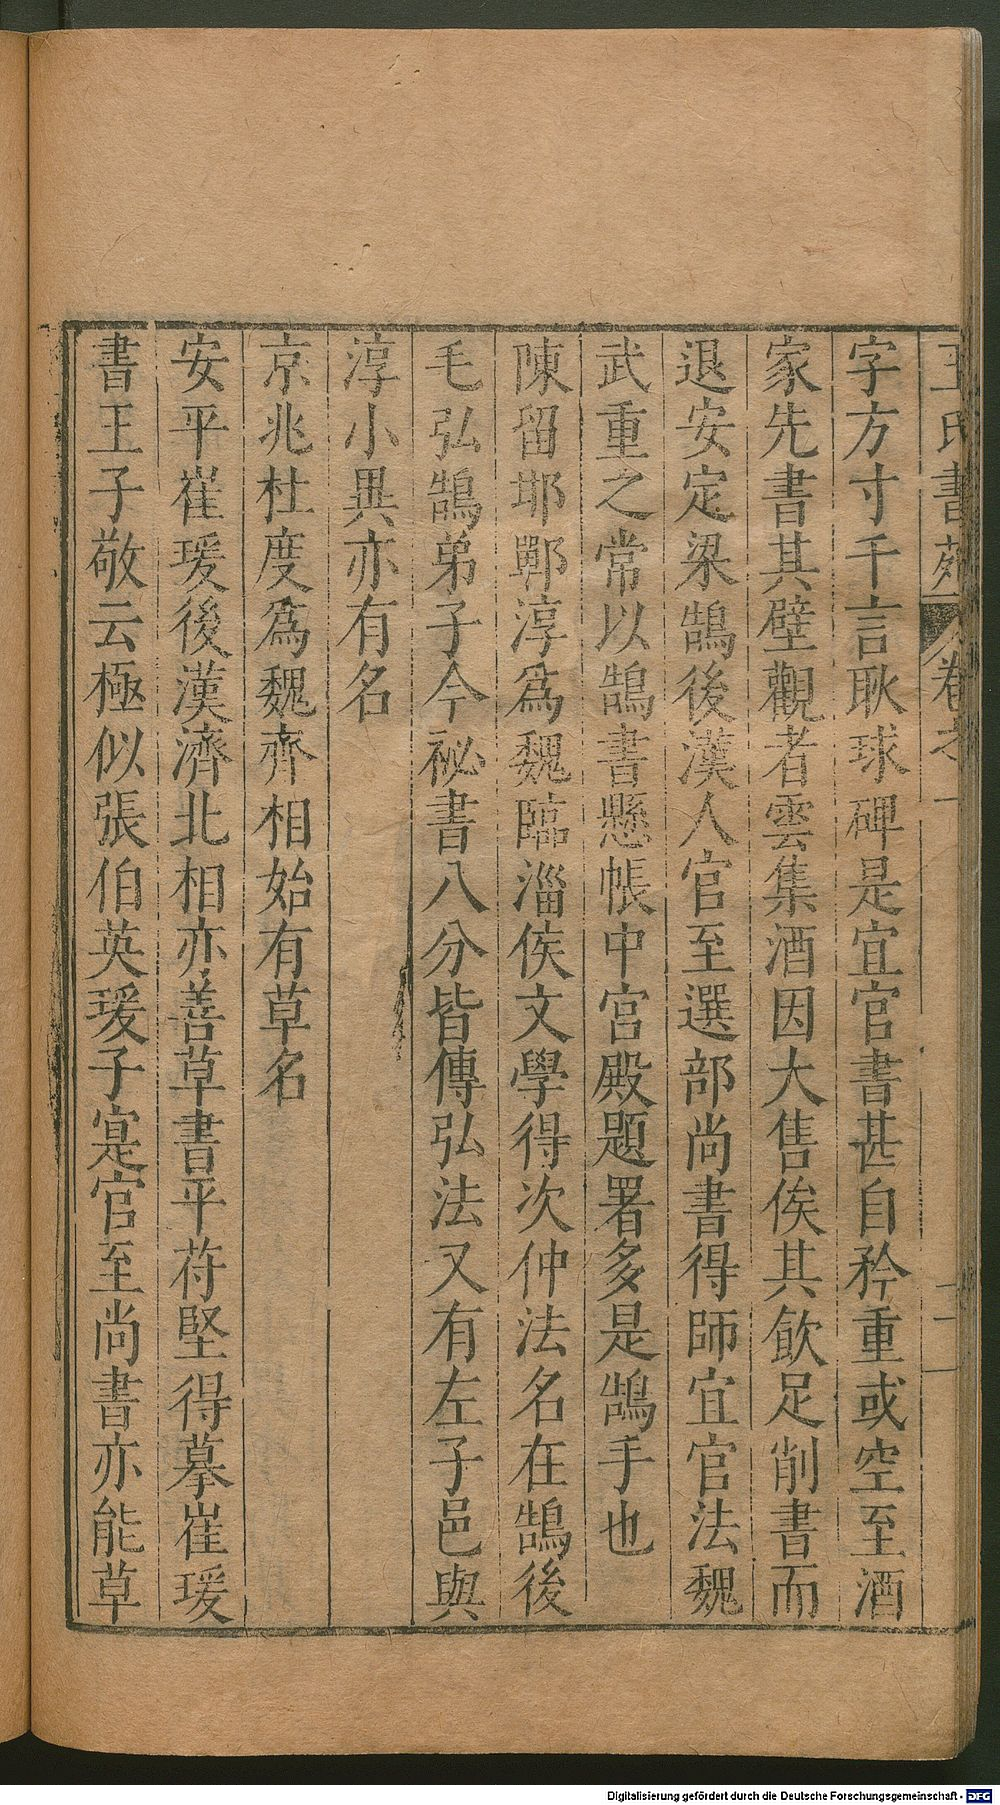 王氏書苑 卷之一 二
字方寸千言耿球碑是宜官書甚自矜重或空至酒
家先書其壁觀者雲集酒因大售俟其飲足削書而
退安定梁鵠後漢人官至選部尚書得師宜官法魏
武重之常以鵠書懸帳中宮殿題署多是鵠手也
陳留邯鄲淳為魏臨淄侯文學得次仲法名在鵠後
毛弘鵠弟子今祕書八分皆傳弘法又有左子邑與
淳小異亦有名
京兆杜度為魏齊相始有草名
安平崔瑗後漢濟北相亦善草書平苻堅得摹崔瑗
書王子敬云極似張伯英瑗子寔官至尚書亦能草
Digitalisierung gefördert durch die Deutsche Forschungsgemeinschaft - DFG